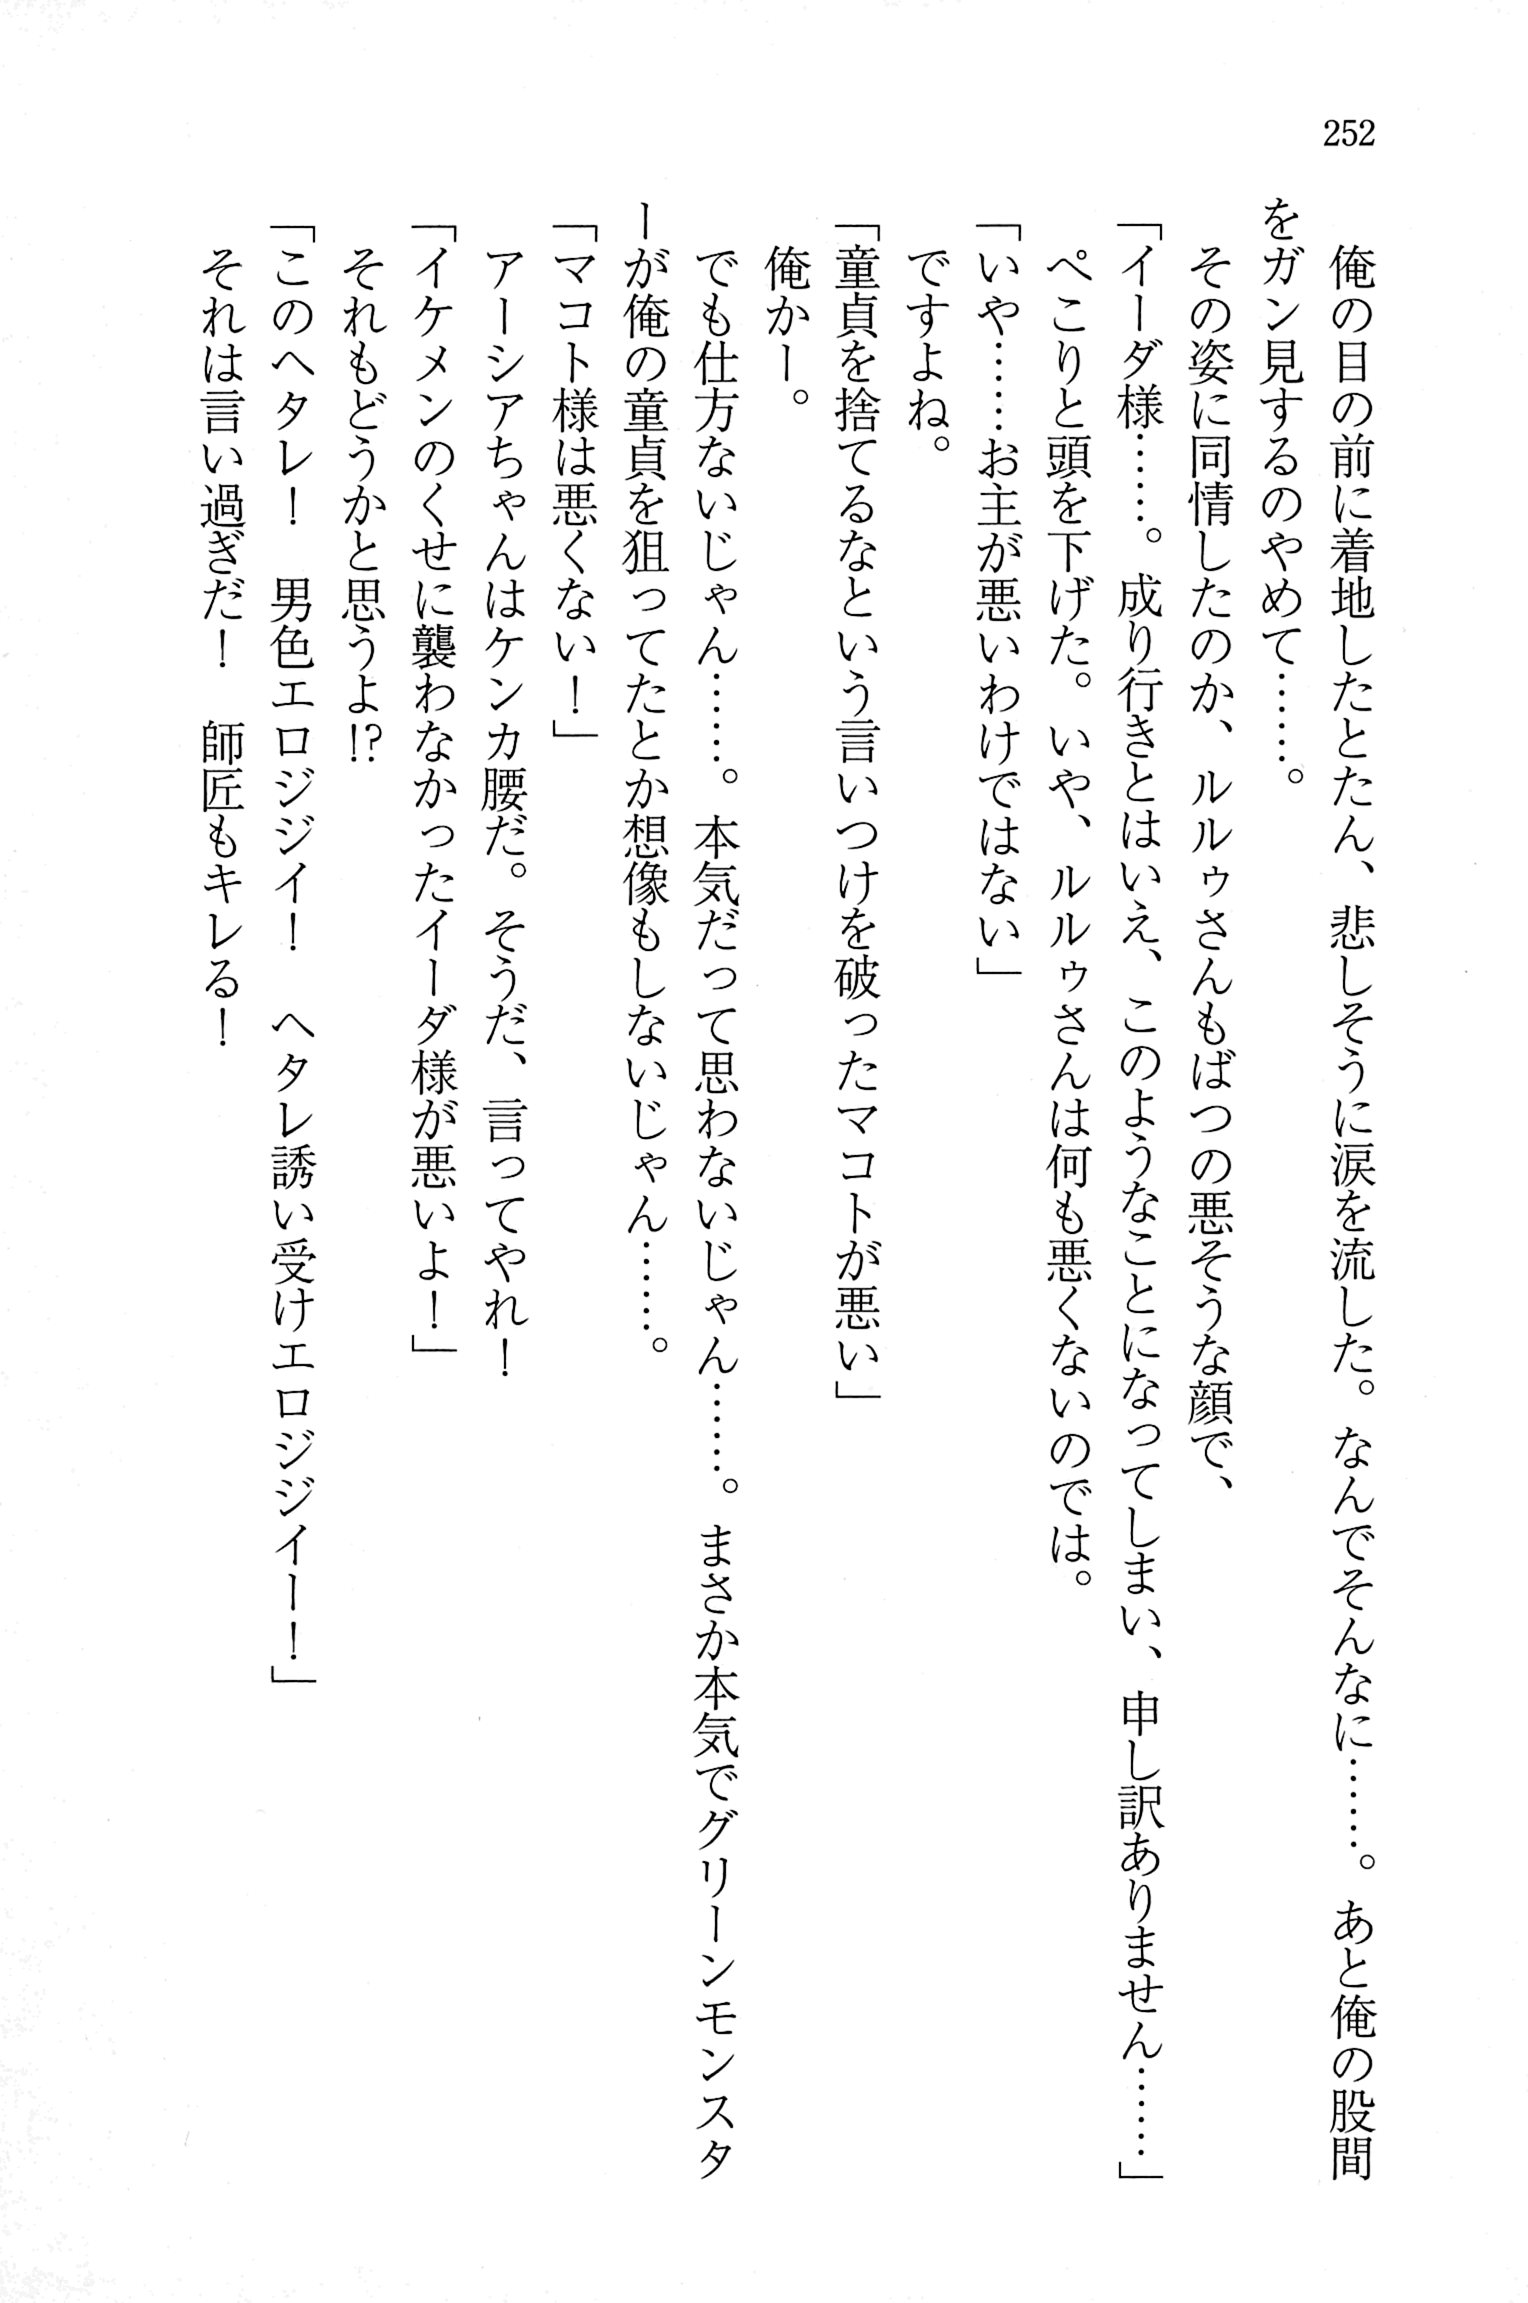 252
　俺の目の前に着地したとたん、悲しそうに涙を流した。なんでそんなに……。あと俺の股間
をガン見するのやめて……。
　その姿に同情したのか、ルルゥさんもばつの悪そうな顔で、
「イーダ様……。成り行きとはいえ、このようなことになってしまい、申し訳ありません……」
　ぺこりと頭を下げた。いや、ルルゥさんは何も悪くないのでは。
「いや……お主が悪いわけではない」
　ですよね。
「童貞を捨てるなという言いつけを破ったマコトが悪い」
　俺かー。
　でも仕方ないじゃん……。本気だって思わないじゃん……。まさか本気でグリーンモンスタ
ーが俺の童貞を狙ってたとか想像もしないじゃん……。
「マコト様は悪くない！」
　アーシアちゃんはケンカ腰だ。そうだ、言ってやれ！
「イケメンのくせに襲わなかったイーダ様が悪いよ！」
　それもどうかと思うよ!?
「このヘタレ！　男色エロジジイ！　ヘタレ誘い受けエロジジイー！」
　それは言い過ぎだ！　師匠もキレる！